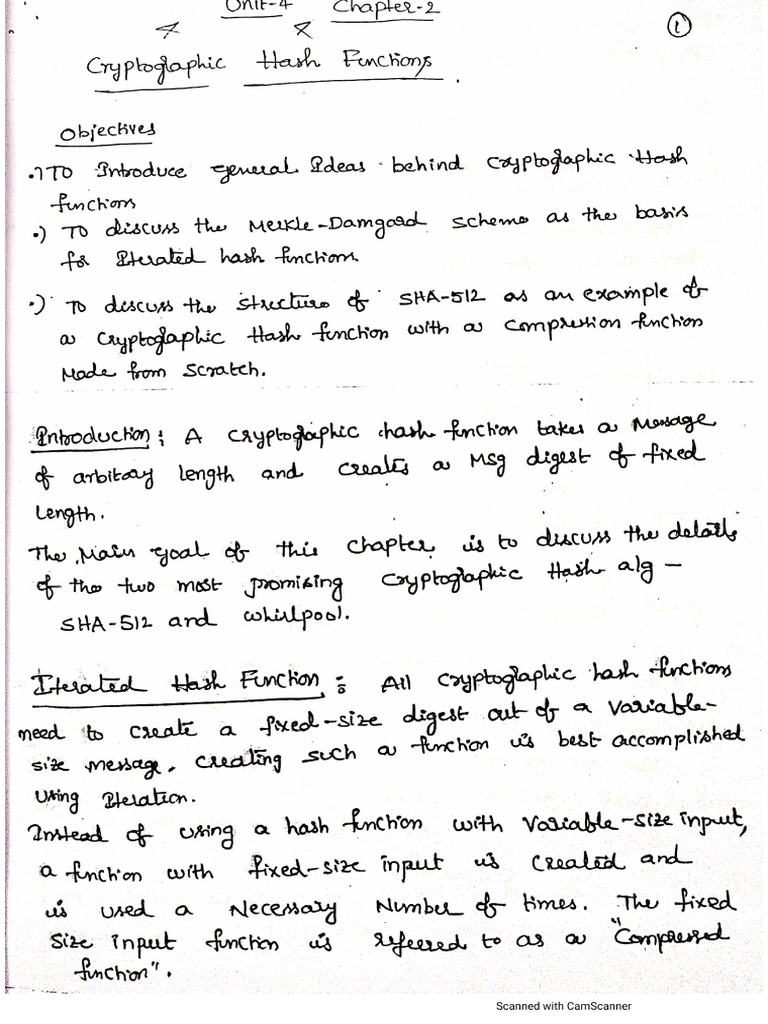 Unit-4 Chapter-2
1
Cryptographic Hash Functions.
Objectives
.) To Introduce general Ideas behind cryptographic Hash
functions
.) To discuss the Merkle-Damgard scheme as the basis
for Iterated hash functions.
.) To discuss the structure of SHA-512 as an example of
a cryptographic Hash function with a compression function
Made from scratch.
Introduction : A cryptographic hash function takes a Message
of arbitary length and creates a Msg digest of fixed
Length.
The Main goal of this chapter is to discuss the details
of the two most promising cryptographic Hash alg -
SHA-512 and whirlpool.
Iterated Hash Function : All cryptographic hash functions
need to create a fixed-size digest out of a variable-
size message. creating such a function is best accomplished
using Iteration.
Instead of using a hash function with variable-size input,
a function with fixed-size input is created and
is used a Necessary Number of times. The fixed
size input function is referred to as a "Compressed
function".
Scanned with CamScanner